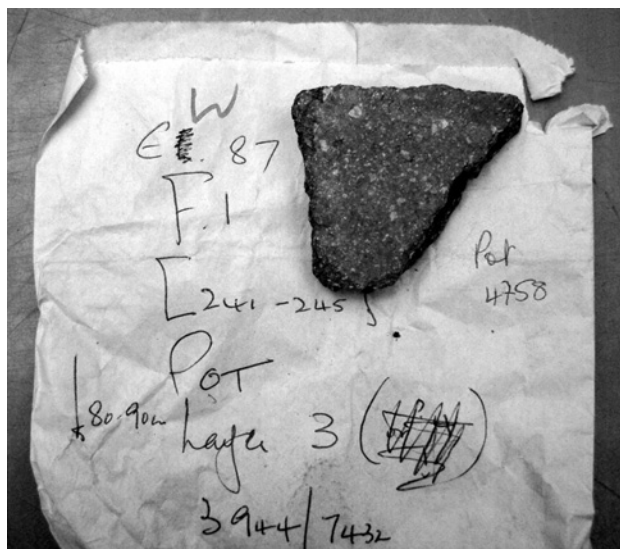 W
E . 87
F.1
[241-245]
Pot
4758
POT
↓80-90cm
Layer 3
3944/7432